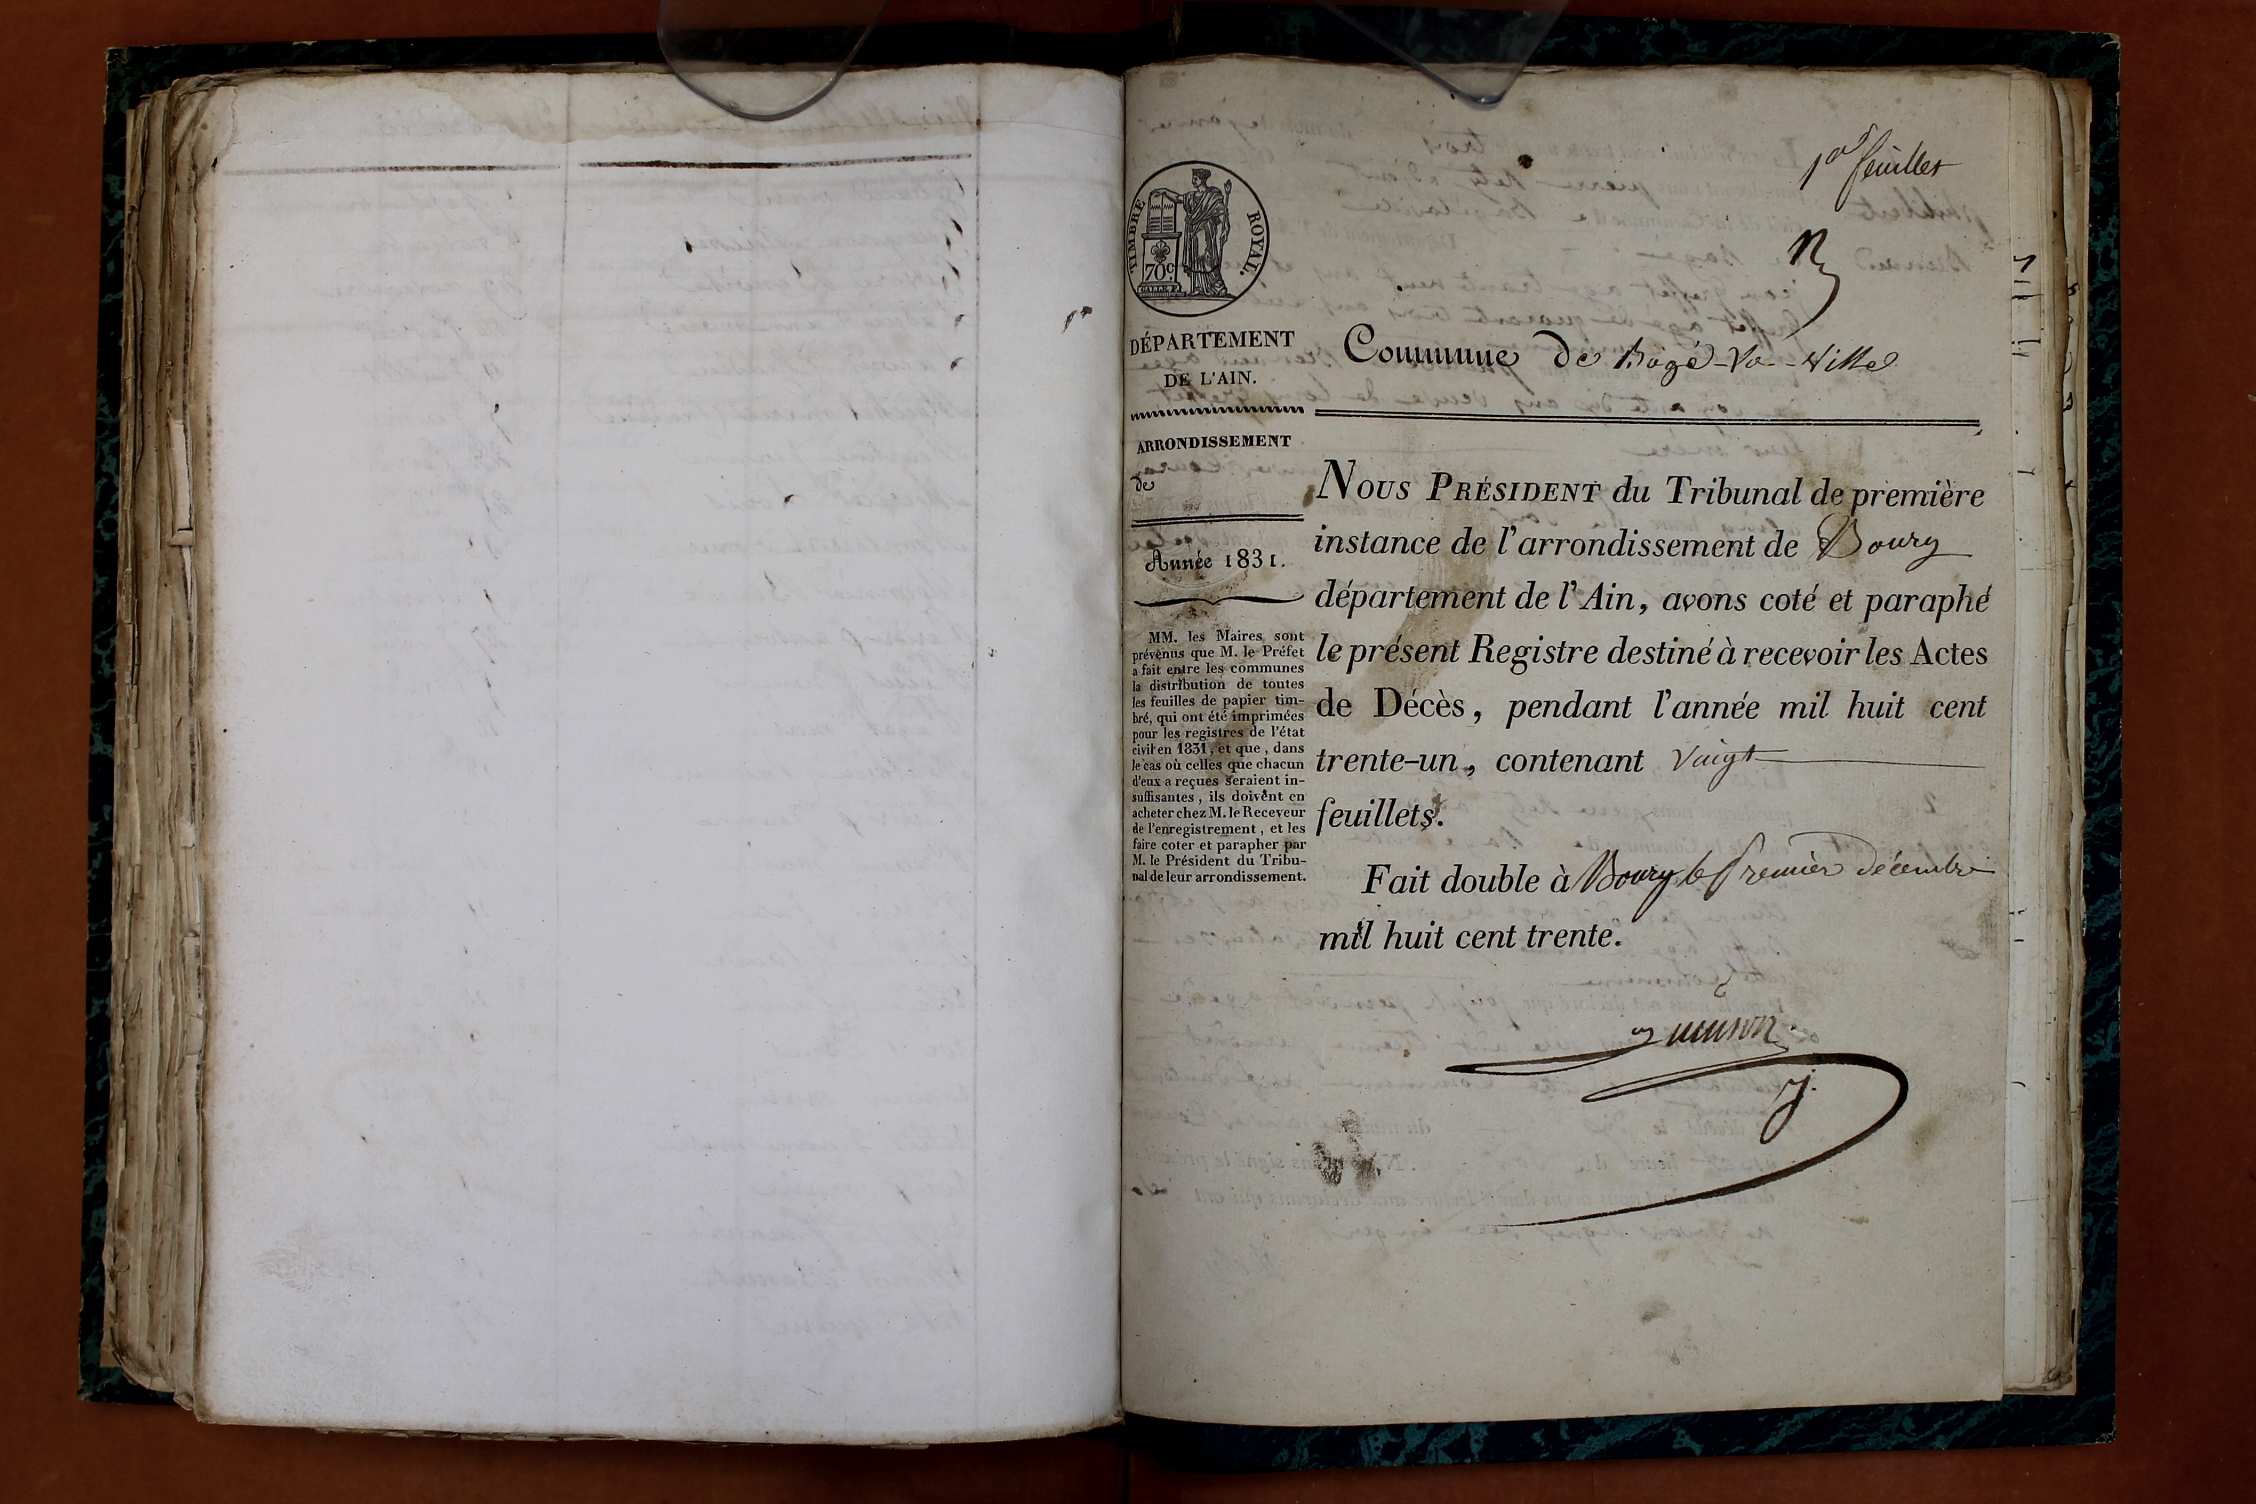 1er feuillet
TIMBRE ROYAL.
70c
DÉPARTEMENT
DE L'AIN.
ARRONDISSEMENT
de
Année 1831.
MM. les Maires sont
prévenus que M. le Préfet
a fait entre les communes
la distribution de toutes
les feuilles de papier tim-
bré, qui ont été imprimées
pour les registres de l'état
civil en 1831, et que, dans
le cas où celles que chacun
d'eux a reçues seraient in-
suffisantes, ils doivent en
acheter chez M. le Receveur
de l'enregistrement, et les
faire coter et parapher par
M. le Président du Tribu-
nal de leur arrondissement.
Commune de Bâgé-la-Ville
NOUS PRÉSIDENT du Tribunal de première
instance de l'arrondissement de Bourg
département de l'Ain, avons coté et paraphé
le présent Registre destiné à recevoir les Actes
de Décès, pendant l'année mil huit cent
trente-un, contenant vingt
feuillets.
Fait double à Bourg le premier décembre
mil huit cent trente.